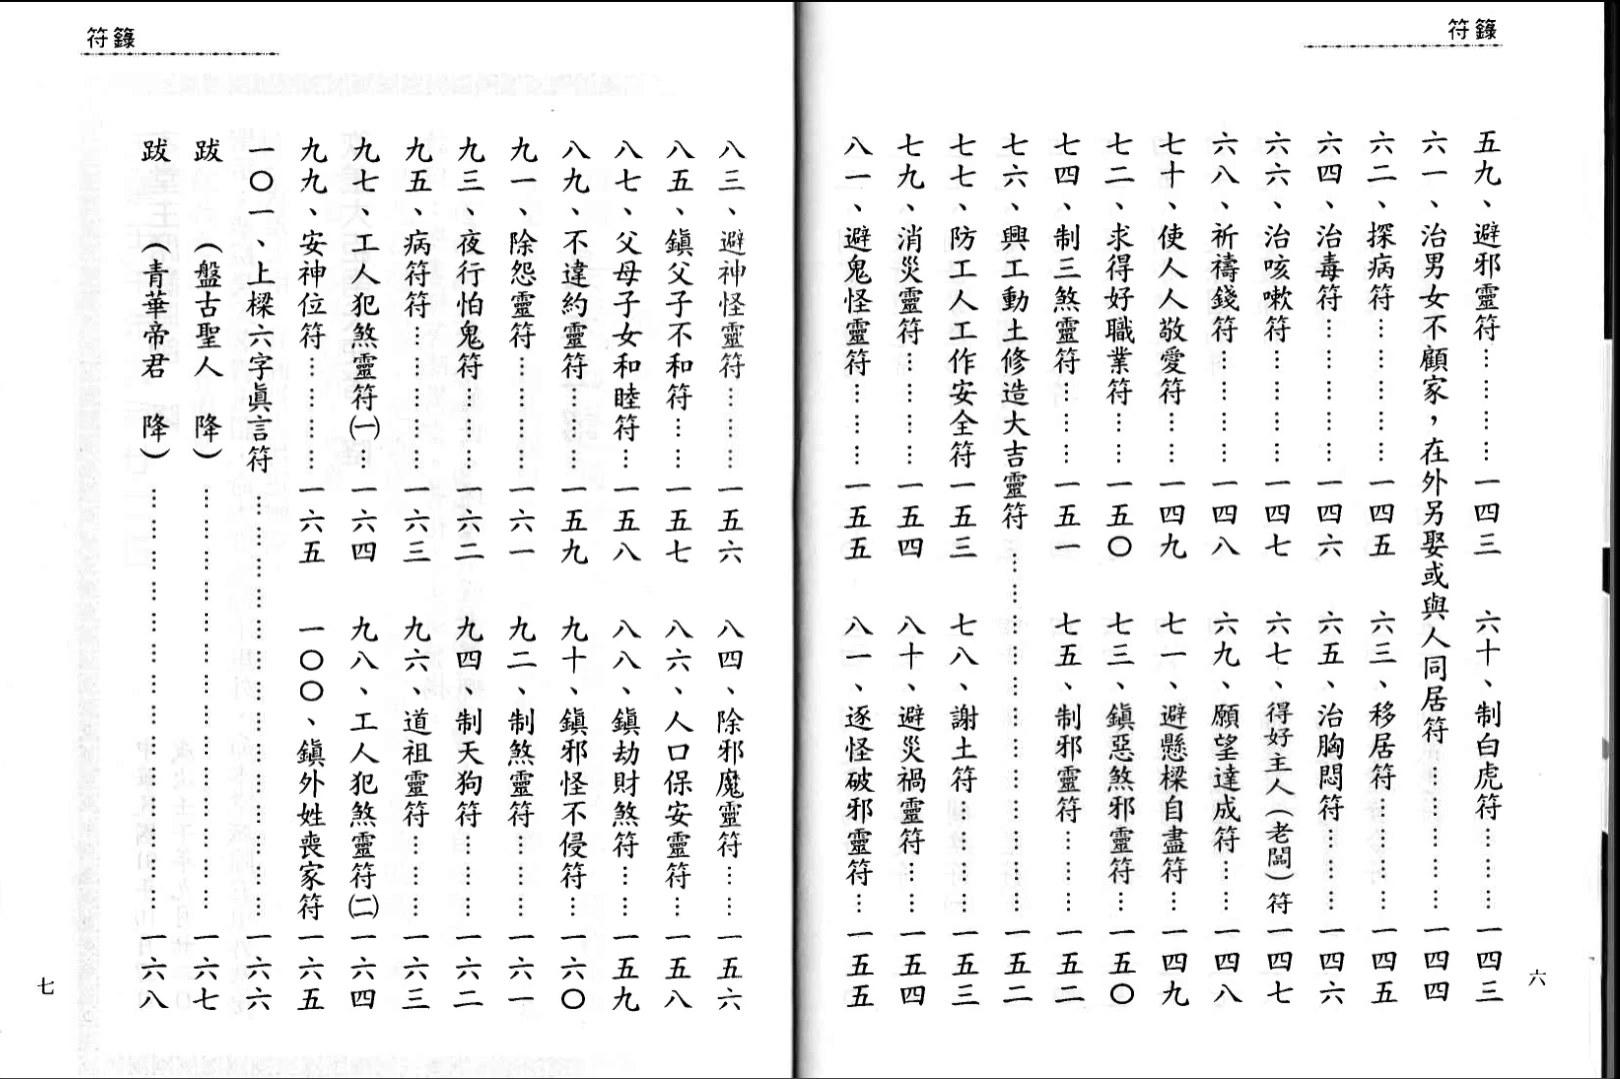 符籙
五九、避邪靈符…………一四三 六十、制白虎符…………一四三
六一、治男女不顧家，在外另娶或與人同居符…………一四四
六二、探病符…………一四五 六三、移居符…………一四五
六四、治毒符…………一四六 六五、治胸悶符…………一四六
六六、治咳嗽符…………一四七 六七、得好主人（老闆）符一四七
六八、祈禱錢符…………一四八 六九、願望達成符……一四八
七十、使人人敬愛符……一四九 七一、避懸樑自盡符…一四九
七二、求得好職業符……一五〇 七三、鎮惡煞邪靈符…一五〇
七四、制三煞靈符………一五一 七五、制邪靈符………一五二
七六、興工動土修造大吉靈符…………一五二
七七、防工人工作安全符一五三 七八、謝土符…………一五三
七九、消災靈符…………一五四 八十、避災禍靈符……一五四
八一、避鬼怪靈符………一五五 八一、逐怪破邪靈符…一五五
六
符籙
八三、避神怪靈符………一五六 八四、除邪魔靈符……一五六
八五、鎮父子不和符……一五七 八六、人口保安靈符…一五八
八七、父母子女和睦符…一五八 八八、鎮劫財煞符……一五九
八九、不違約靈符………一五九 九十、鎮邪怪不侵符…一六〇
九一、除怨靈符…………一六一 九二、制煞靈符………一六一
九三、夜行怕鬼符………一六二 九四、制天狗符………一六二
九五、病符符……………一六三 九六、道祖靈符………一六三
九七、工人犯煞靈符㈠…一六四 九八、工人犯煞靈符㈡一六四
九九、安神位符…………一六五 一〇〇、鎮外姓喪家符一六五
一〇一、上樑六字眞言符…………一六六
跋　（盤古聖人　降）…………一六七
跋　（青華帝君　降）…………一六八
七